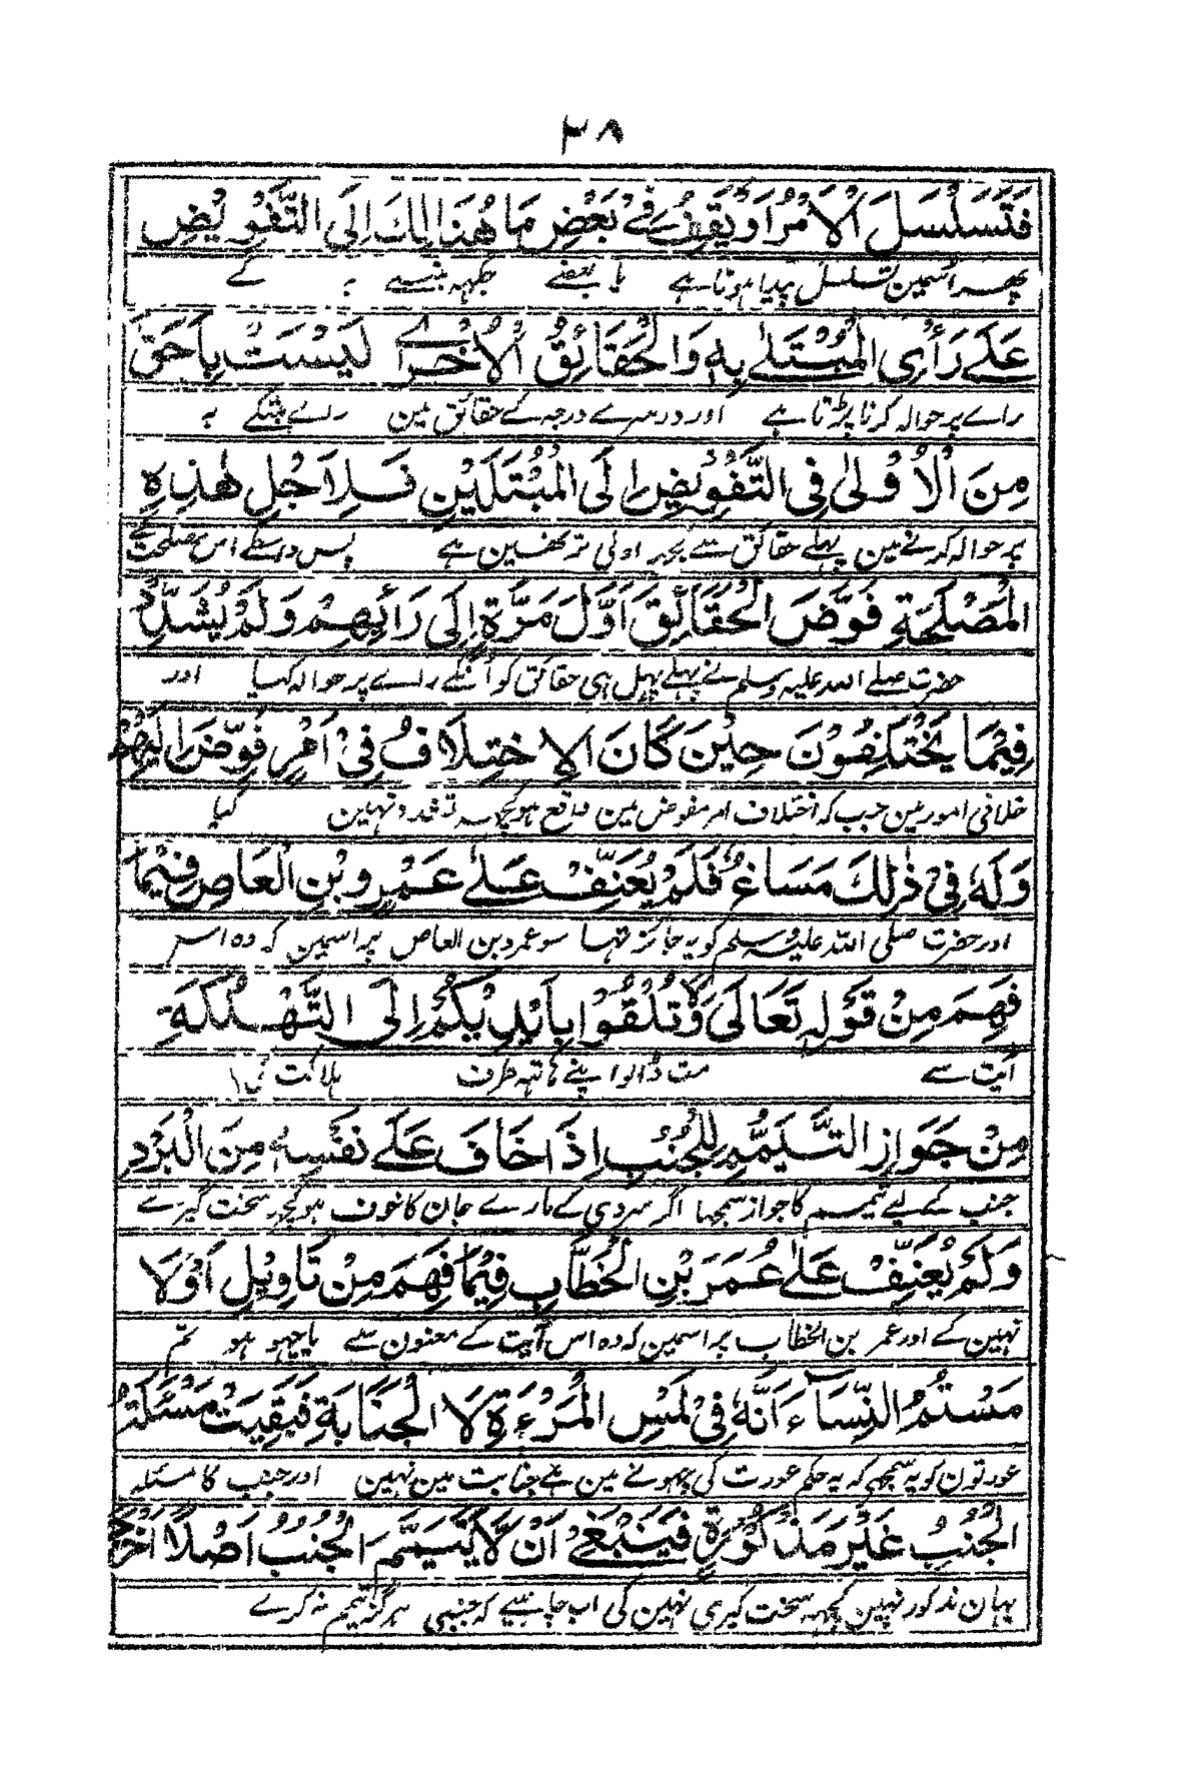 ٣٨
فَتَسَلْسَلَ الْاَمْرُ اَوْ يَقِفُ فِيْ بَعْضِ مَا هُنَالِكَ اِلَى التَّفْوِيْضِ
پھر اسمین تسلسل پیدا ہوتا ہے یا بعضے جگہہ مبتلے بہ کے
عَلٰے رَأْىِ الْمُبْتَلٰے بِهٖ وَالْحَقَائِقُ الْاُخْرٰے لَيْسَتْ بِاَحَقَّ
راے پر حوالہ کرنا پڑتا ہے اور دوسرے درجہ کے حقائق مین راے مبتلے بہ
مِنَ الْاُوْلٰى فِى التَّفْوِيْضِ اِلَى الْمُبْتَلَيْنَ فَلِاَجْلِ هٰذِهِ
پر حوالہ کرنے مین پہلے حقائق سے کچہہ اولی تر نہین ہے پس واسطے اس مصلحت کے
الْمَصْلَحَةِ فَوَّضَ الْحَقَائِقَ اَوَّلَ مَرَّةٍ اِلٰى رَائِهِمْ وَلَمْ يُشَدِّدْ
حضرت صلے اللہ علیہ وسلم نے پہلے پہل ہی حقائق کو اُنکے راے پر حوالہ کیا اور
فِيْمَا يَخْتَلِفُوْنَ حِيْنَ كَانَ الْاِخْتِلَافُ فِيْ اَمْرٍ فُوِّضَ اِلَيْهِمْ
خلافی امور مین جب کہ اختلاف امر مفوض مین واقع ہو کچہہ تشدد نہین کیا
وَلَهٗ فِيْ ذٰلِكَ مَسَاغٌ فَلَمْ يُعَنِّفْ عَلٰے عَمْرِو بْنِ الْعَاصِ فِيْمَا
اور حضرت صلی اللہ علیہ وسلم کو یہ جائز تہا سو عمرو بن العاص پر اسمین کہ وہ اس
فَهِمَ مِنْ قَوْلِهٖ تَعَالٰى وَلَا تُلْقُوْا بِاَيْدِيْكُمْ اِلَى التَّهْلُكَةِ
آیت سے مت ڈالو اپنے ہاتہہ طرف ہلاکت کی
مِنْ جَوَازِ التَّيَمُّمِ لِلْجُنُبِ اِذَا خَافَ عَلٰے نَفْسِهٖ مِنَ الْبَرْدِ
جنب کے لیے تیمم کا جواز سمجہا اگر سردی کے مارے جان کا خوف ہو کچہہ سخت گیرے
وَلَمْ يُعَنِّفْ عَلٰے عُمَرَ بْنِ الْخَطَّابِ فِيْمَا فَهِمَ مِنْ تَاوِيْلِ اَوْ لَا
نہین کے اور عمر بن الخطاب پر اسمین کہ وہ اس آیت کے معنون سے یا چہو ہو تم
مَسْتُمُ النِّسَآءَ اَنَّهٗ فِيْ لَمْسِ الْمَرْءَةِ لَا الْجَنَابَةِ فَبَقِيَتْ مَسْئَلَةُ
عورتون کو یہ سمجہے کہ یہ حکم عورت کی چہونے مین ہے جنابت مین نہین اور جنب کا مسئلہ
الْجُنُبِ غَيْرَ مَذْكُوْرَةٍ فَيَنْبَغِيْ اَنْ لَّا يَتَيَمَّمَ الْجُنُبُ اَصْلًا
یہان مذکور نہین کچہہ سخت گیری نہین کی اب چاہیے کہ جنبی ہرگز تیمم نہ کرے